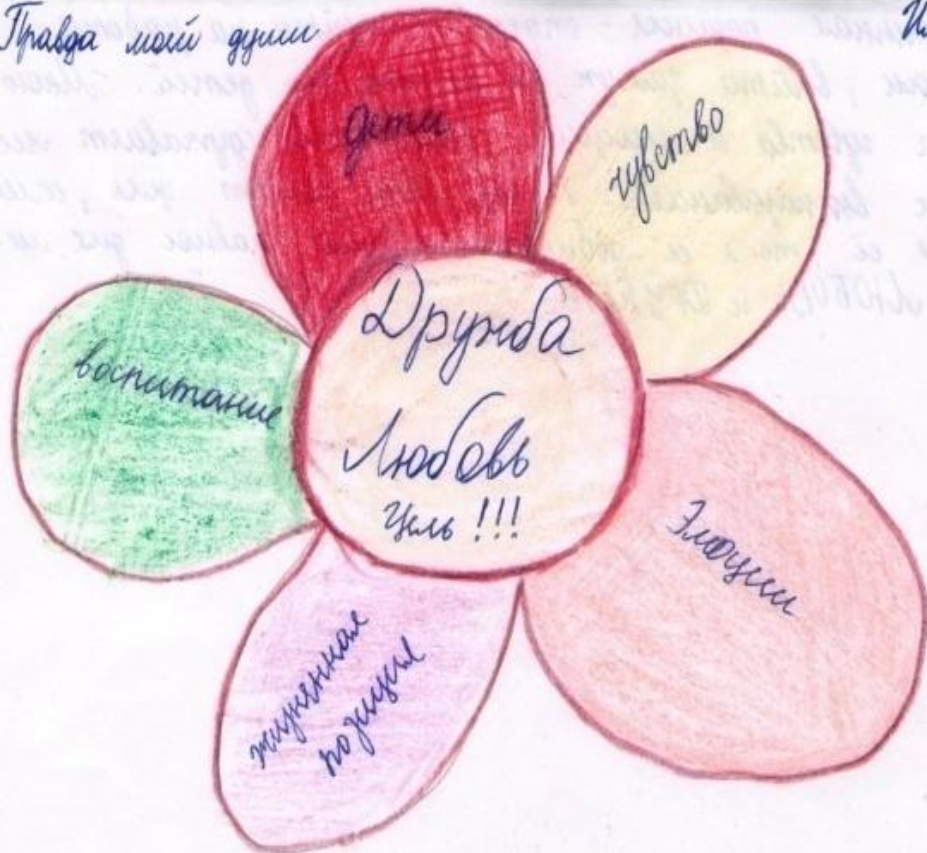 Правда моей души
дети
чувство
воспитание
Дружба
Любовь
Цель !!!
Эмоции
жизненная
позиция